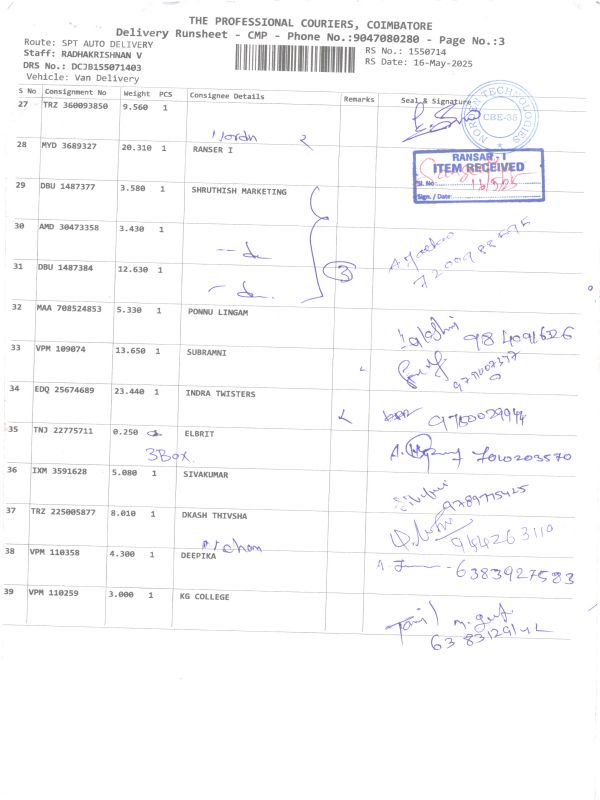 THE PROFESSIONAL COURIERS, COIMBATORE
Delivery Runsheet - CMP - Phone No.:9047080280 - Page No.:3
Route: SPT AUTO DELIVERY
Staff: RADHAKRISHNAN V
DRS No.: DCJB155071403
Vehicle: Van Delivery
RS No.: 1550714
RS Date: 16-May-2025
S No Consignment No Weight PCS Consignee Details Remarks Seal & Signature
27 TRZ 360093850 9.560 1
KOREN TECHNOLOGIES
CBE-35
28 MYD 3689327 20.310 1 RANSER I
RANSAR - I
ITEM RECEIVED
Sl. No:
Sign. / Date:
29 DBU 1487377 3.580 1 SHRUTHISH MARKETING
30 AMD 30473358 3.430 1
31 DBU 1487384 12.630 1 3
32 MAA 708524853 5.330 1 PONNU LINGAM
33 VPM 109074 13.650 1 SUBRAMNI
34 EDQ 25674689 23.440 1 INDRA TWISTERS
9750029944
35 TNJ 22775711 0.250 ELBRIT
3Box
7010203570
36 IXM 3591628 5.080 1 SIVAKUMAR
9789715425
37 TRZ 225005877 8.010 1 DKASH THIVSHA
38 VPM 110358 4.300 1 DEEPIKA
6383927583
39 VPM 110259 3.000 1 KG COLLEGE